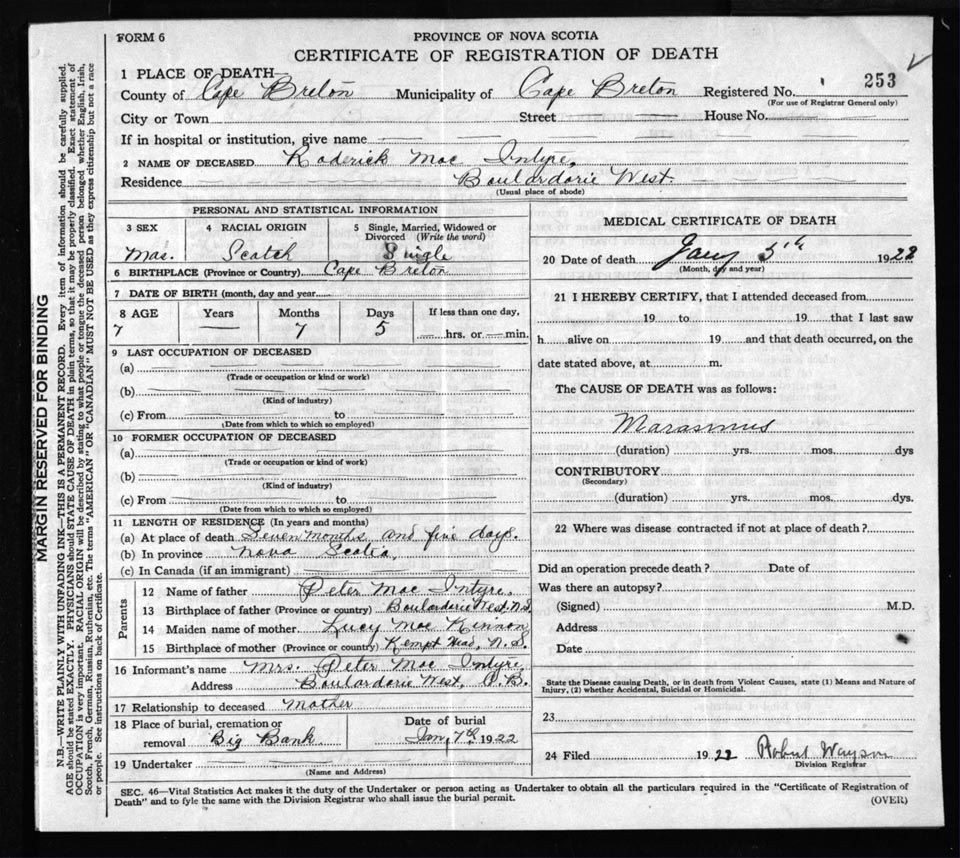 FORM 6
PROVINCE OF NOVA SCOTIA
CERTIFICATE OF REGISTRATION OF DEATH
253
1 PLACE OF DEATH—
County of Cape Breton Municipality of Cape Breton Registered No.
(For use of Registrar General only)
City or Town Street House No.
If in hospital or institution, give name
2 NAME OF DECEASED Roderick Mac Intyre,
Residence Boulardarie West.
(Usual place of abode)
PERSONAL AND STATISTICAL INFORMATION
3 SEX 4 RACIAL ORIGIN 5 Single, Married, Widowed or Divorced (Write the word)
Mas. Scotch Single
6 BIRTHPLACE (Province or Country) Cape Breton
7 DATE OF BIRTH (month, day and year)
8 AGE Years Months Days If less than one day,
7 — 7 5 hrs. or — min.
9 LAST OCCUPATION OF DECEASED
(a)
(Trade or occupation or kind or work)
(b)
(Kind of industry)
(c) From to
(Date from which to which so employed)
10 FORMER OCCUPATION OF DECEASED
(a)
(Trade or occupation or kind of work)
(b)
(Kind of industry)
(c) From to
(Date from which to which so employed)
11 LENGTH OF RESIDENCE (In years and months)
(a) At place of death Seven months and five days.
(b) In province Nova Scotia,
(c) In Canada (if an immigrant)
Parents
12 Name of father Peter Mac Intyre.
13 Birthplace of father (Province or country) Boulardarie West. N.S.
14 Maiden name of mother Lucy Mac Kinnon
15 Birthplace of mother (Province or country) Kempt Head, N.S.
16 Informant's name Mrs. Peter Mac Intyre
Address Boulardarie West, C.B.
17 Relationship to deceased Mother
18 Place of burial, cremation or Date of burial
removal Big Bank Jan, 7th 1922
19 Undertaker
(Name and Address)
MEDICAL CERTIFICATE OF DEATH
20 Date of death Jany 5th 1922
(Month, day and year)
21 I HEREBY CERTIFY, that I attended deceased from
19 to 19 that I last saw
h alive on 19 and that death occurred, on the
date stated above, at m.
The CAUSE OF DEATH was as follows:
Marasmus
(duration) yrs. mos. dys
CONTRIBUTORY
(Secondary)
(duration) yrs. mos. dys.
22 Where was disease contracted if not at place of death?
Did an operation precede death? Date of
Was there an autopsy?
(Signed) M.D.
Address
Date
State the Disease causing Death, or in death from Violent Causes, state (1) Means and Nature of
Injury, (2) whether Accidental, Suicidal or Homicidal.
23
24 Filed 1922 Robert Wayson
Division Registrar
SEC. 46—Vital Statistics Act makes it the duty of the Undertaker or person acting as Undertaker to obtain all the particulars required in the "Certificate of Registration of
Death" and to fyle the same with the Division Registrar who shall issue the burial permit.
(OVER)
MARGIN RESERVED FOR BINDING
N.B.—WRITE PLAINLY WITH UNFADING INK—THIS IS A PERMANENT RECORD. Every item of information should be carefully supplied.
AGE should be stated EXACTLY. PHYSICIANS should STATE CAUSE OF DEATH in plain terms, so that it may be properly classified. Exact statement of
OCCUPATION is very important. RACIAL ORIGIN will be described by stating to what people or tongue the deceased person belonged whether English, Irish,
Scotch, French, German, Russian, Ruthenian, etc. The terms "AMERICAN" OR "CANADIAN" MUST NOT BE USED as they express citizenship but not a race
or people. See instructions on back of Certificate.